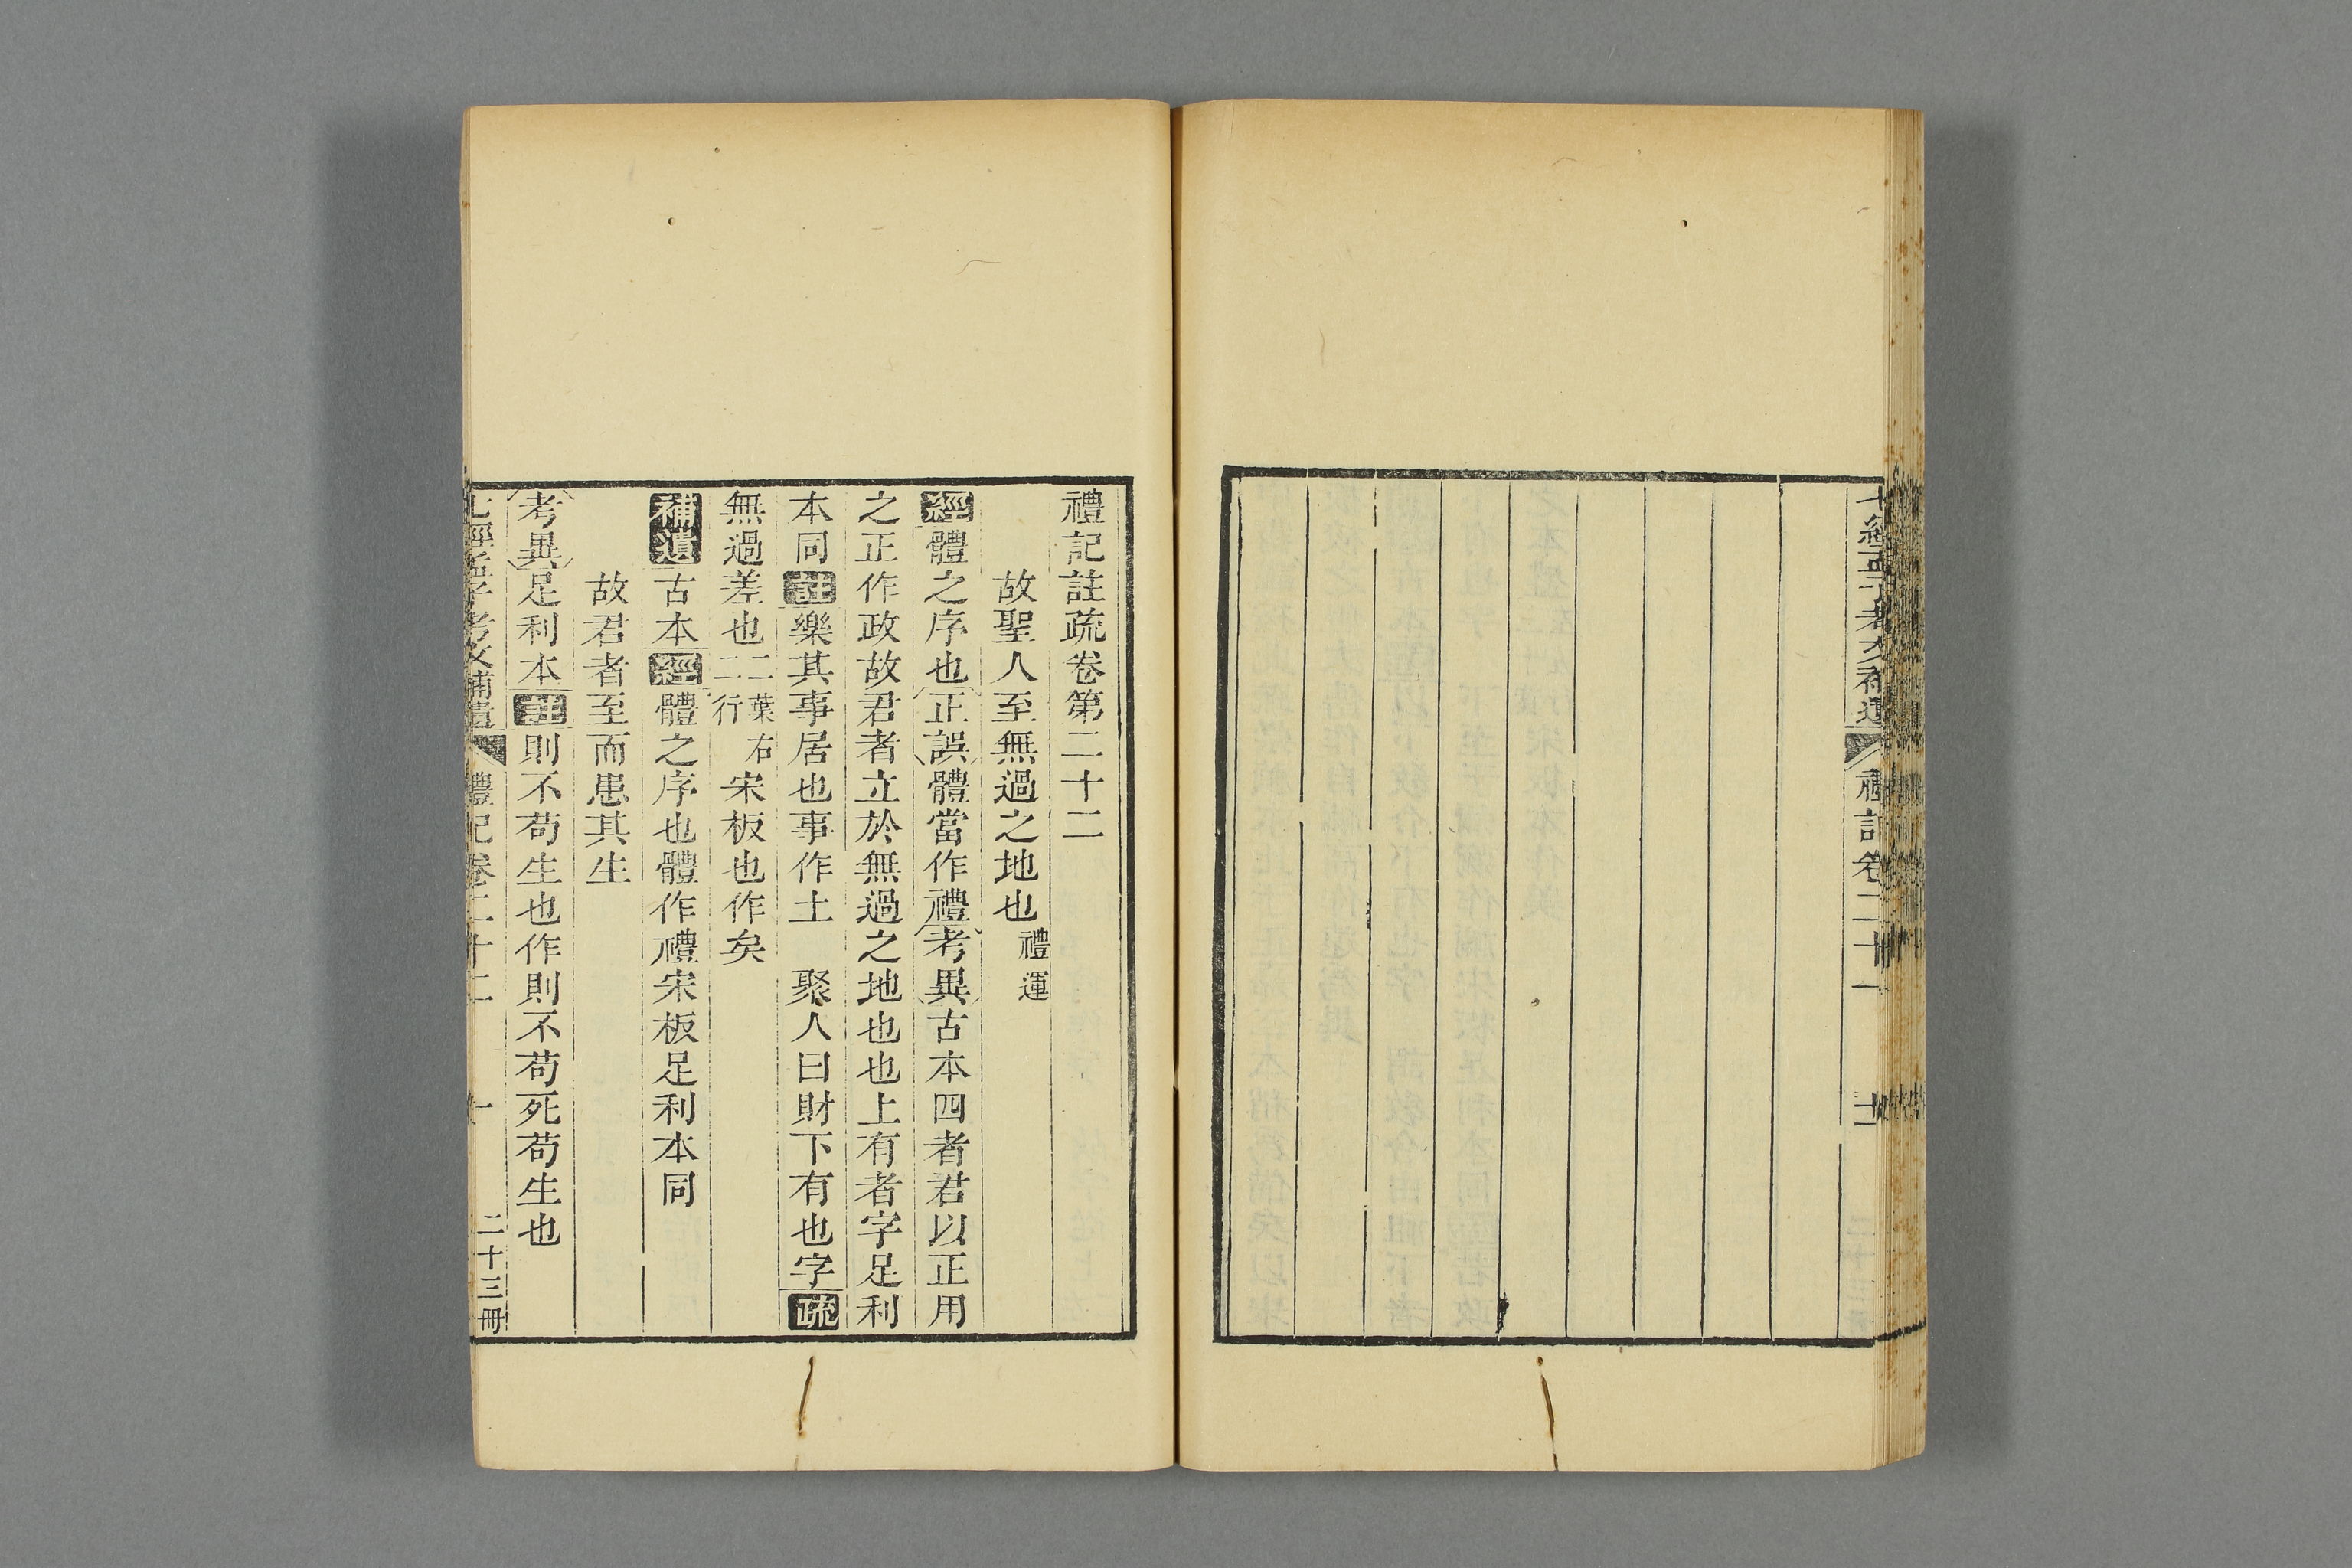 七經孟子考文補遺
禮記卷二十一
十一
禮記註疏卷第二十二
故聖人至無過之地也禮運
經體之序也正誤體當作禮考異古本四者君以正用
之正作政故君者立於無過之地也也上有者字足利
本同註樂其事居也事作士　聚人曰財下有也字疏
無過差也二葉右二行宋板也作矣
補遺古本經體之序也體作禮宋板足利本同
故君者至而患其生
考異足利本註則不苟生也作則不苟死苟生也
七經孟子考文補遺
禮記卷二十二
一
二十三冊